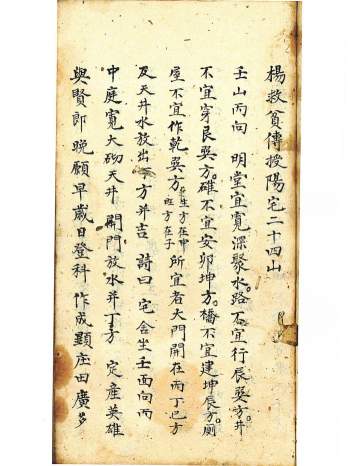 楊救貧傳授陽宅二十四山
壬山丙向　明堂宜寬深聚水。路不宜行辰巽方。井
不宜穿艮巽方。碓不宜安卯坤方。橋不宜建坤辰方。厠
屋不宜作乾巽方。生方在申旺方在子所宜者大門開在丙丁巳方
及天井水放出方并吉　詩曰　宅舍坐壬面向丙
中庭寬大砌天井　開門放水并丁方　定產英雄
與賢郎　晚願早歲日登科　作成顯庄田廣多